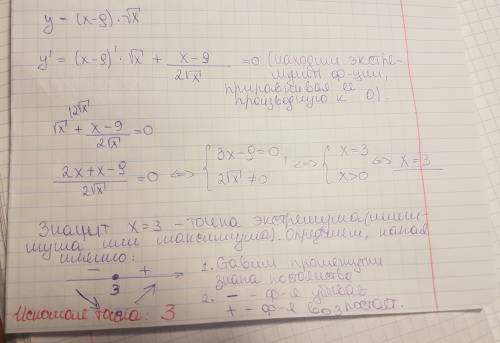 y = (x-9)·√x
y' = (x-9)'·√x + (x-9)/(2√x) = 0 (находим экстре-
мумы ф-ции,
приравнивая её
производную к 0).
√x^{|2√x} + (x-9)/(2√x) = 0
(2x+x-9)/(2√x) = 0 <=> { 3x-9=0, 2√x≠0 <=> { x=3 x>0 <=> x=3
Значит x=3 - точка экстремума (мини-
мума или максимума). Определим, какая
именно:
- +
3
1. Ставим промежутки
знака постоянства
2. - - ф-я убывает
+ - ф-я возрастает.
Искомая точка: 3